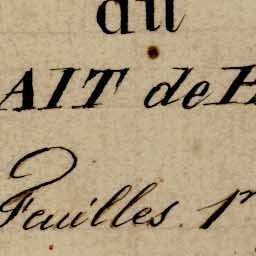 du
AIT de H
Feuilles. 1r